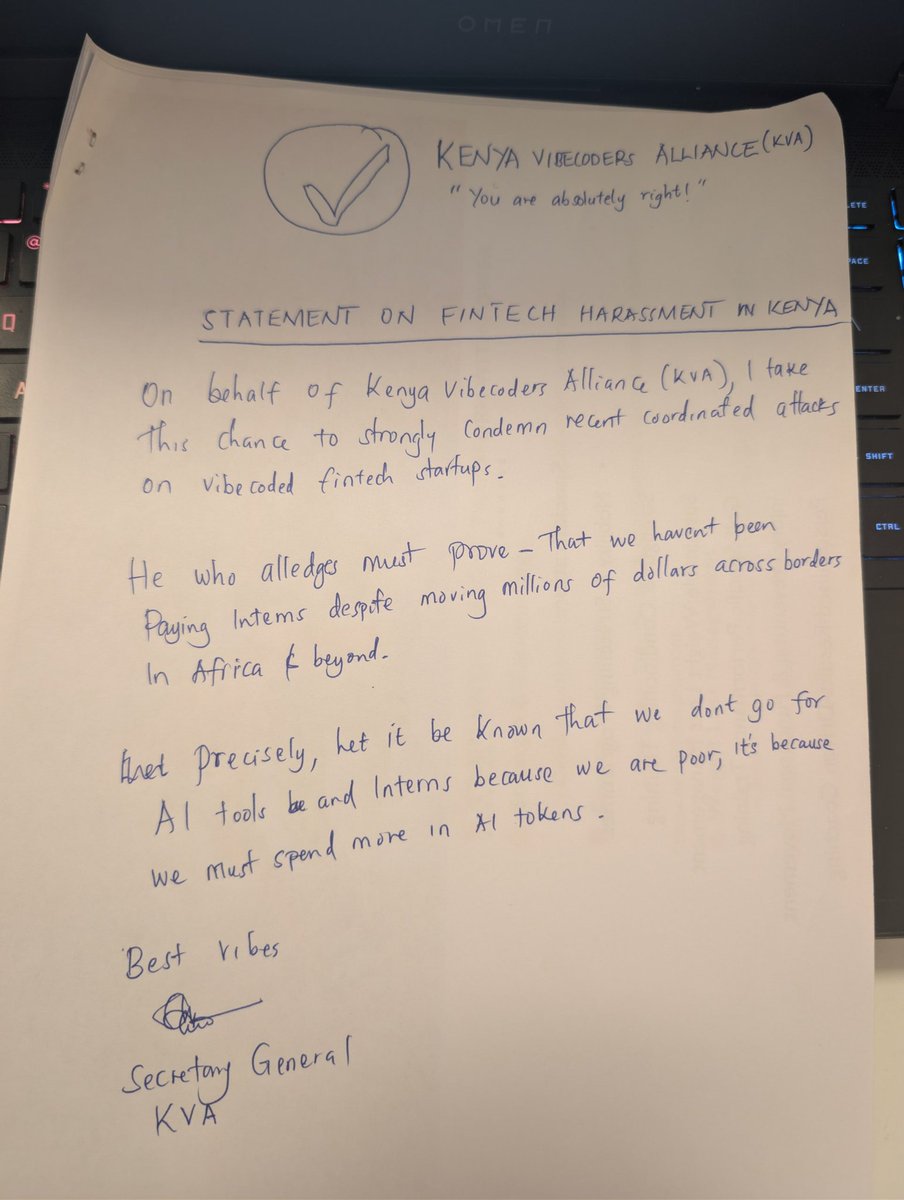 OMEN
KENYA VIBECODERS ALLIANCE (KVA)
"You are absolutely right!"
STATEMENT ON FINTECH HARASSMENT IN KENYA
On behalf of Kenya Vibecoders Alliance (KVA), I take
this chance to strongly condemn recent coordinated attacks
on vibecoded fintech startups.
He who alledges must prove - That we havent been
Paying Interns despite moving millions of dollars across borders
In Africa & beyond.
Precisely, Let it be known that we dont go for
AI tools and Interns because we are poor, it's because
we must spend more in AI tokens.
Best vibes
Secretary General
KVA
@
Q
A
LETE
PACE
ENTER
SHIFT
CTRL